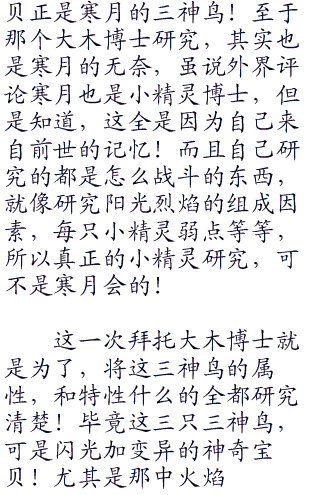 贝正是寒月的三神鸟！至于
那个大木博士研究，其实也
是寒月的无奈，虽说外界评
论寒月也是小精灵博士，但
是知道，这全是因为自己来
自前世的记忆！而且自己研
究的都是怎么战斗的东西，
就像研究阳光烈焰的组成因
素，每只小精灵弱点等等，
所以真正的小精灵研究，可
不是寒月会的！
这一次拜托大木博士就
是为了，将这三神鸟的属
性，和特性什么的全都研究
清楚！毕竟这三只三神鸟，
可是闪光加变异的神奇宝
贝！尤其是那中火焰